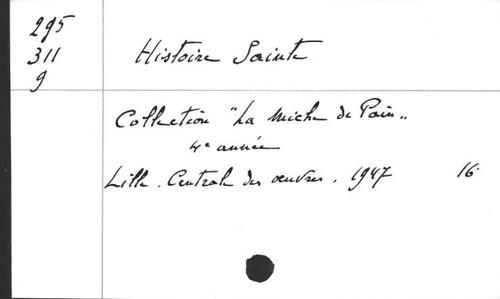 295
311
9
Histoire Sainte
Collection "La Miche de Pain"
4e année
Lille. Centrale des œuvres. 1947 16.